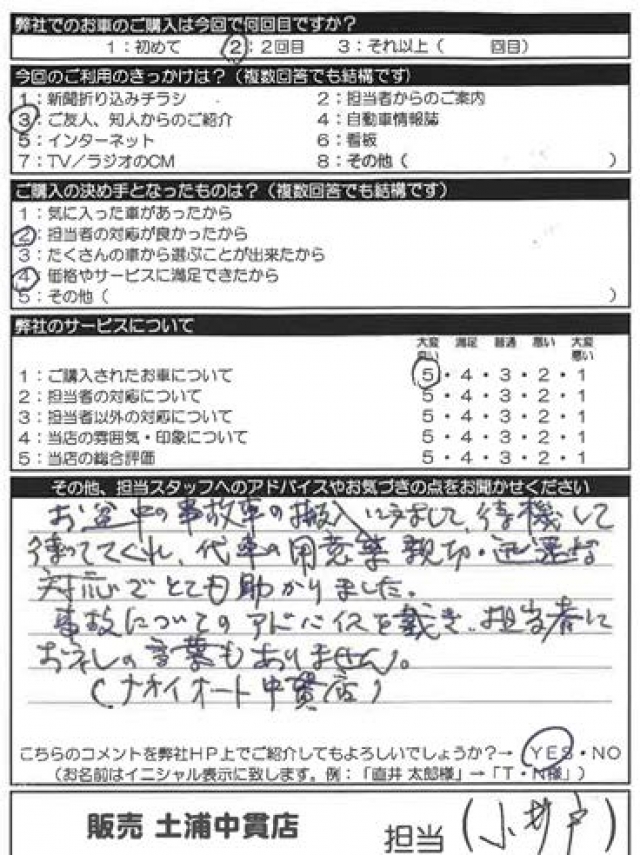 弊社でのお車のご購入は今回で何回目ですか？
1：初めて　2：2回目　3：それ以上（　　回目）
今回のご利用のきっかけは？（複数回答でも結構です）
1：新聞折り込みチラシ　2：担当者からのご案内
3：ご友人、知人からのご紹介　4：自動車情報誌
5：インターネット　6：看板
7：TV／ラジオのCM　8：その他（　　）
ご購入の決め手となったものは？（複数回答でも結構です）
1：気に入った車があったから
2：担当者の対応が良かったから
3：たくさんの車から選ぶことが出来たから
4：価格やサービスに満足できたから
5：その他（　　）
弊社のサービスについて
大変良い　満足　普通　悪い　大変悪い
1：ご購入されたお車について　5・4・3・2・1
2：担当者の対応について　5・4・3・2・1
3：担当者以外の対応について　5・4・3・2・1
4：当店の雰囲気・印象について　5・4・3・2・1
5：当店の総合評価　5・4・3・2・1
その他、担当スタッフへのアドバイスやお気づきの点をお聞かせください
お盆中の事故車の搬入に、待機して
待っててくれ、代車の用意等 親切・迅速な
対応でとても助かりました。
事故についてのアドバイスを戴き、担当者に
お礼の言葉もありません。
（ナオイオート中貫店）
こちらのコメントを弊社HP上でご紹介してもよろしいでしょうか？→ YES・NO
（お名前はイニシャル表示に致します。例：「直井 太郎様」→「T・N様」）
販売 土浦中貫店　担当（小井戸）